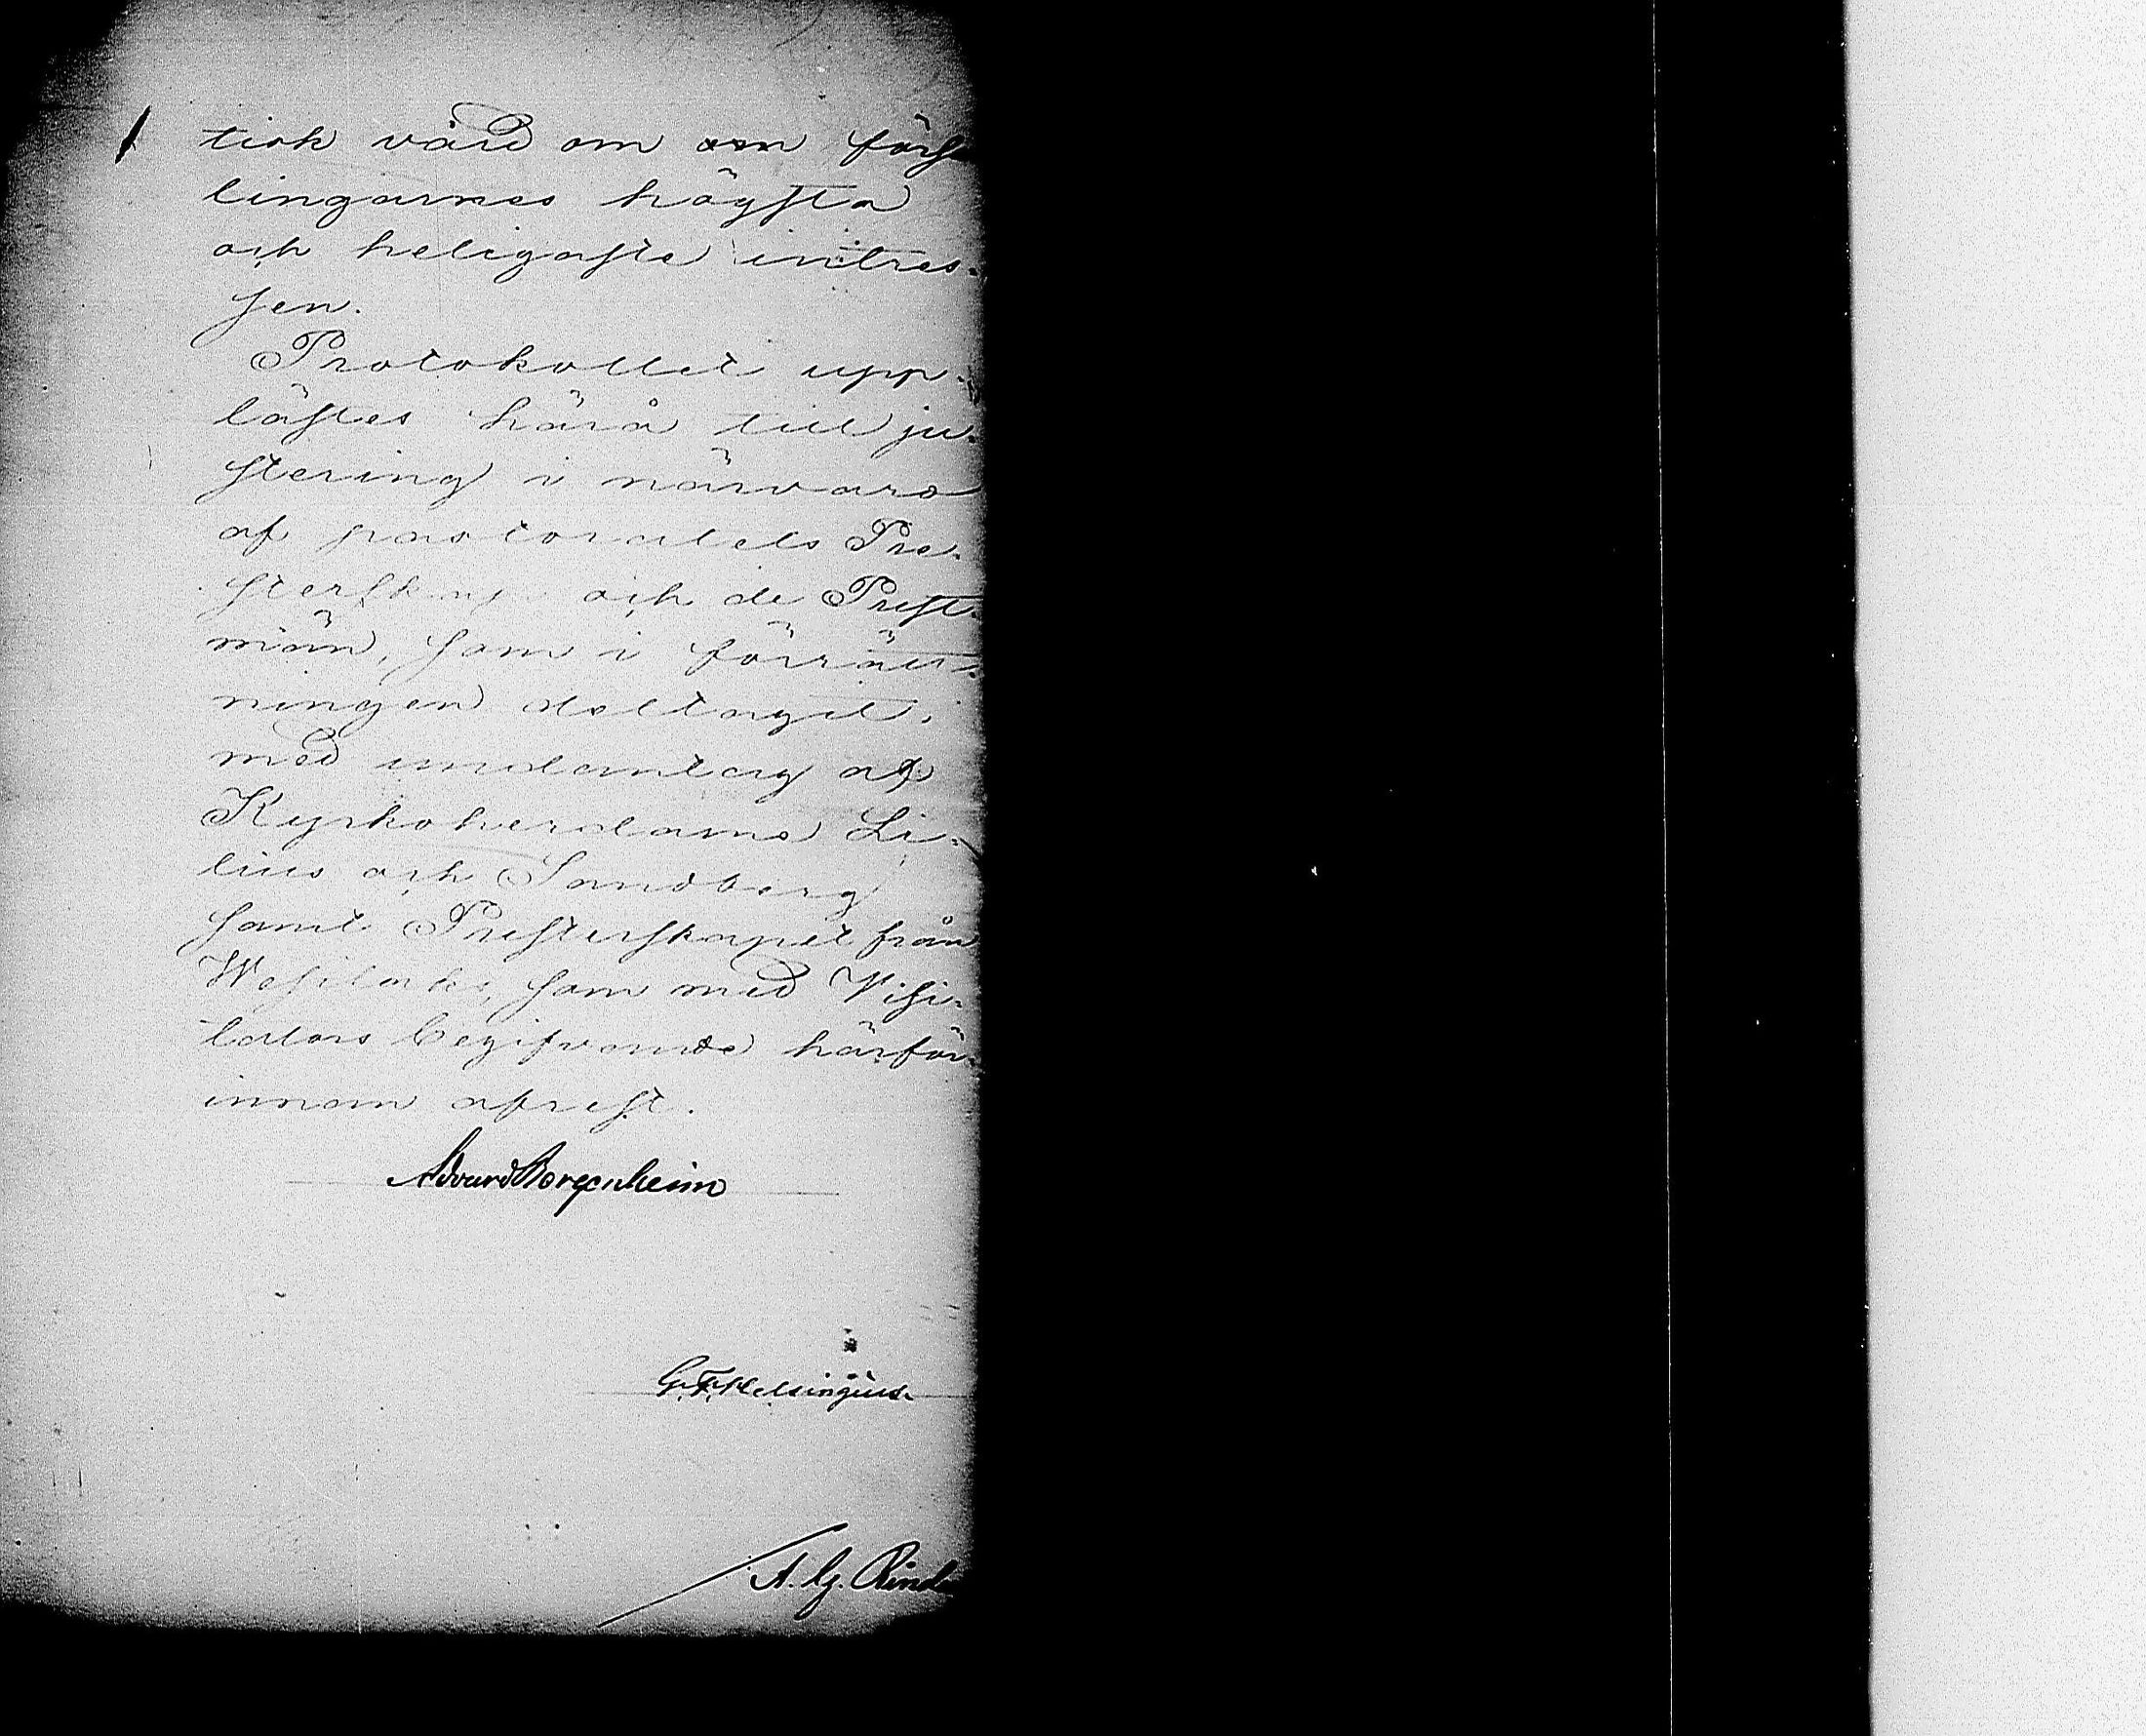 tisk vård om om försam
lingarnes högsta
och heligaste intres-
sen.
Protokollet upp-
lästes härå till ju-
stering i närvaro
af pastoratets Pre-
sterskap och de Prest-
män, som i förrätt-
ningen deltagit,
med undantag af
Kyrkoherdarne Li-
lius och Sandberg
samt Presterskapet från
Wesilaks, som med Visi-
tators begifvande härför-
innan afrest.
Edvard Borgenheim
G. F. Helsingius.
A. G. Rind